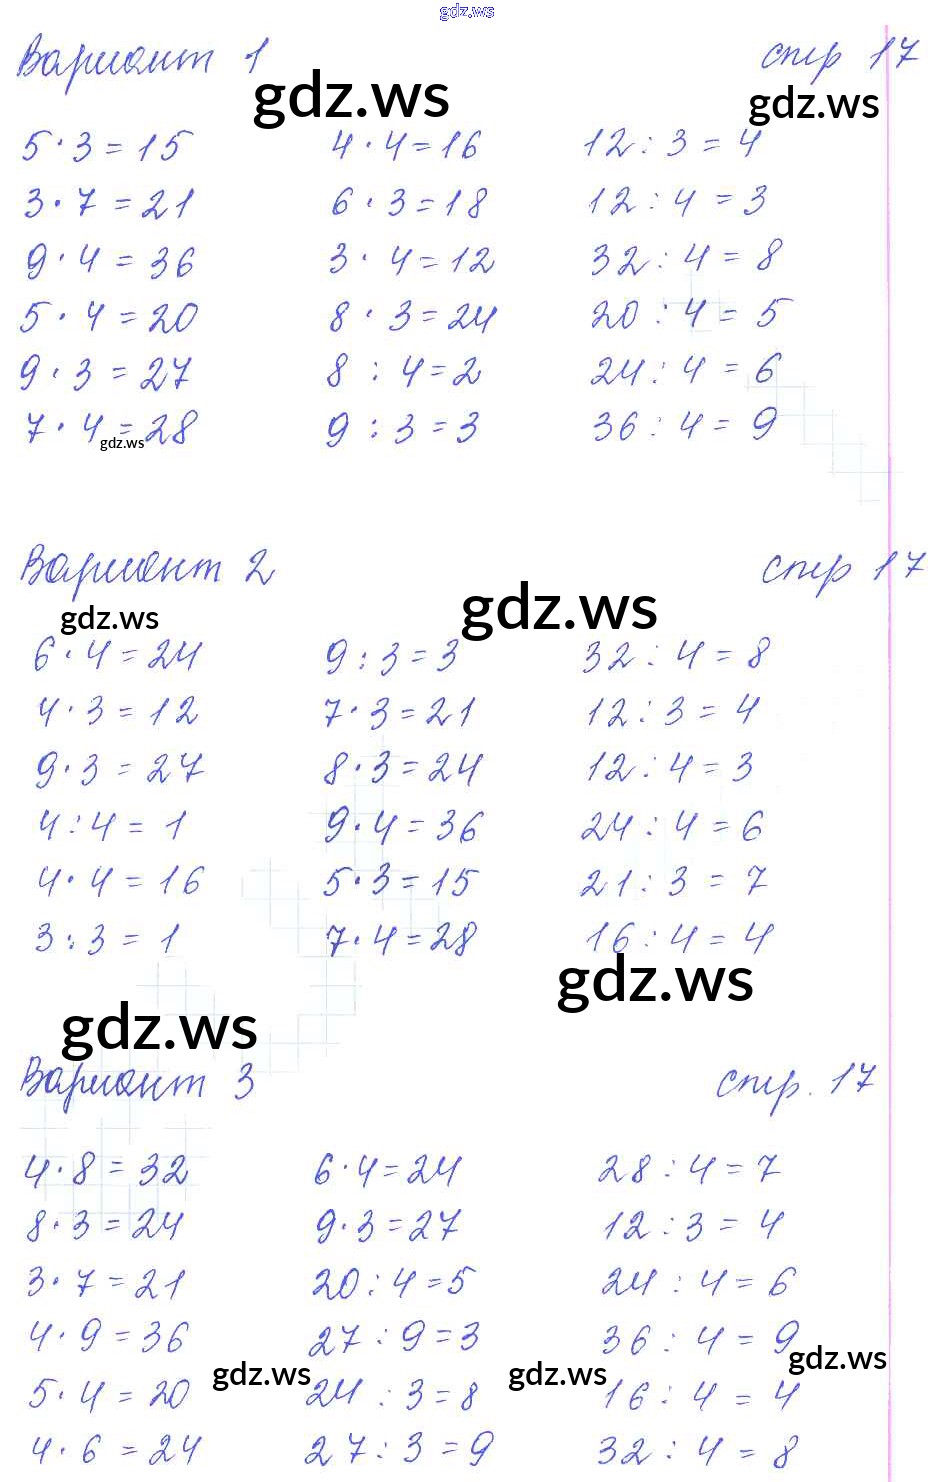 gdz.ws
Вариант 1 стр 17
gdz.ws gdz.ws
5·3=15 4·4=16 12:3=4
3·7=21 6·3=18 12:4=3
9·4=36 3·4=12 32:4=8
5·4=20 8·3=24 20:4=5
9·3=27 8:4=2 24:4=6
7·4=28 9:3=3 36:4=9
gdz.ws
Вариант 2 стр 17
gdz.ws gdz.ws
6·4=24 9:3=3 32:4=8
4·3=12 7·3=21 12:3=4
9·3=27 8·3=24 12:4=3
4:4=1 9·4=36 24:4=6
4·4=16 5·3=15 21:3=7
3:3=1 7·4=28 16:4=4
gdz.ws
gdz.ws
Вариант 3 стр. 17
4·8=32 6·4=24 28:4=7
8·3=24 9·3=27 12:3=4
3·7=21 20:4=5 24:4=6
4·9=36 27:9=3 36:4=9
gdz.ws gdz.ws gdz.ws
5·4=20 24:3=8 16:4=4
4·6=24 27:3=9 32:4=8